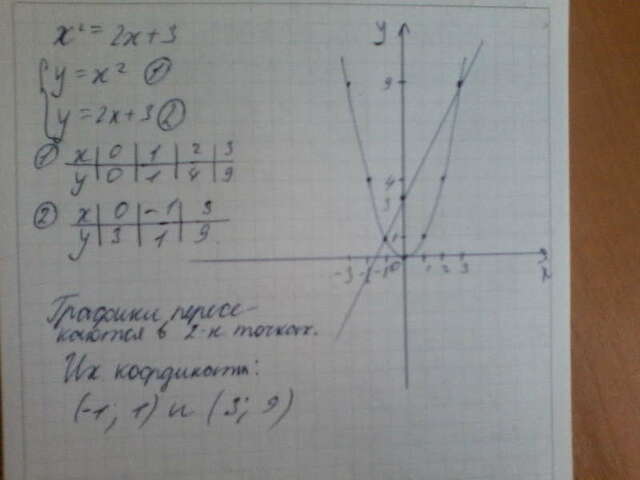 x² = 2x+3
y = x² ①
y = 2x+3 ②
① x 0 1 2 3
y 0 1 4 9
② x 0 -1 3
y 3 1 9
Графики пересе-
каются в 2-х точках.
Их координаты:
(-1; 1) и (3; 9)
y
9
4
3
1
-3 -2 -1 0 1 2 3
x